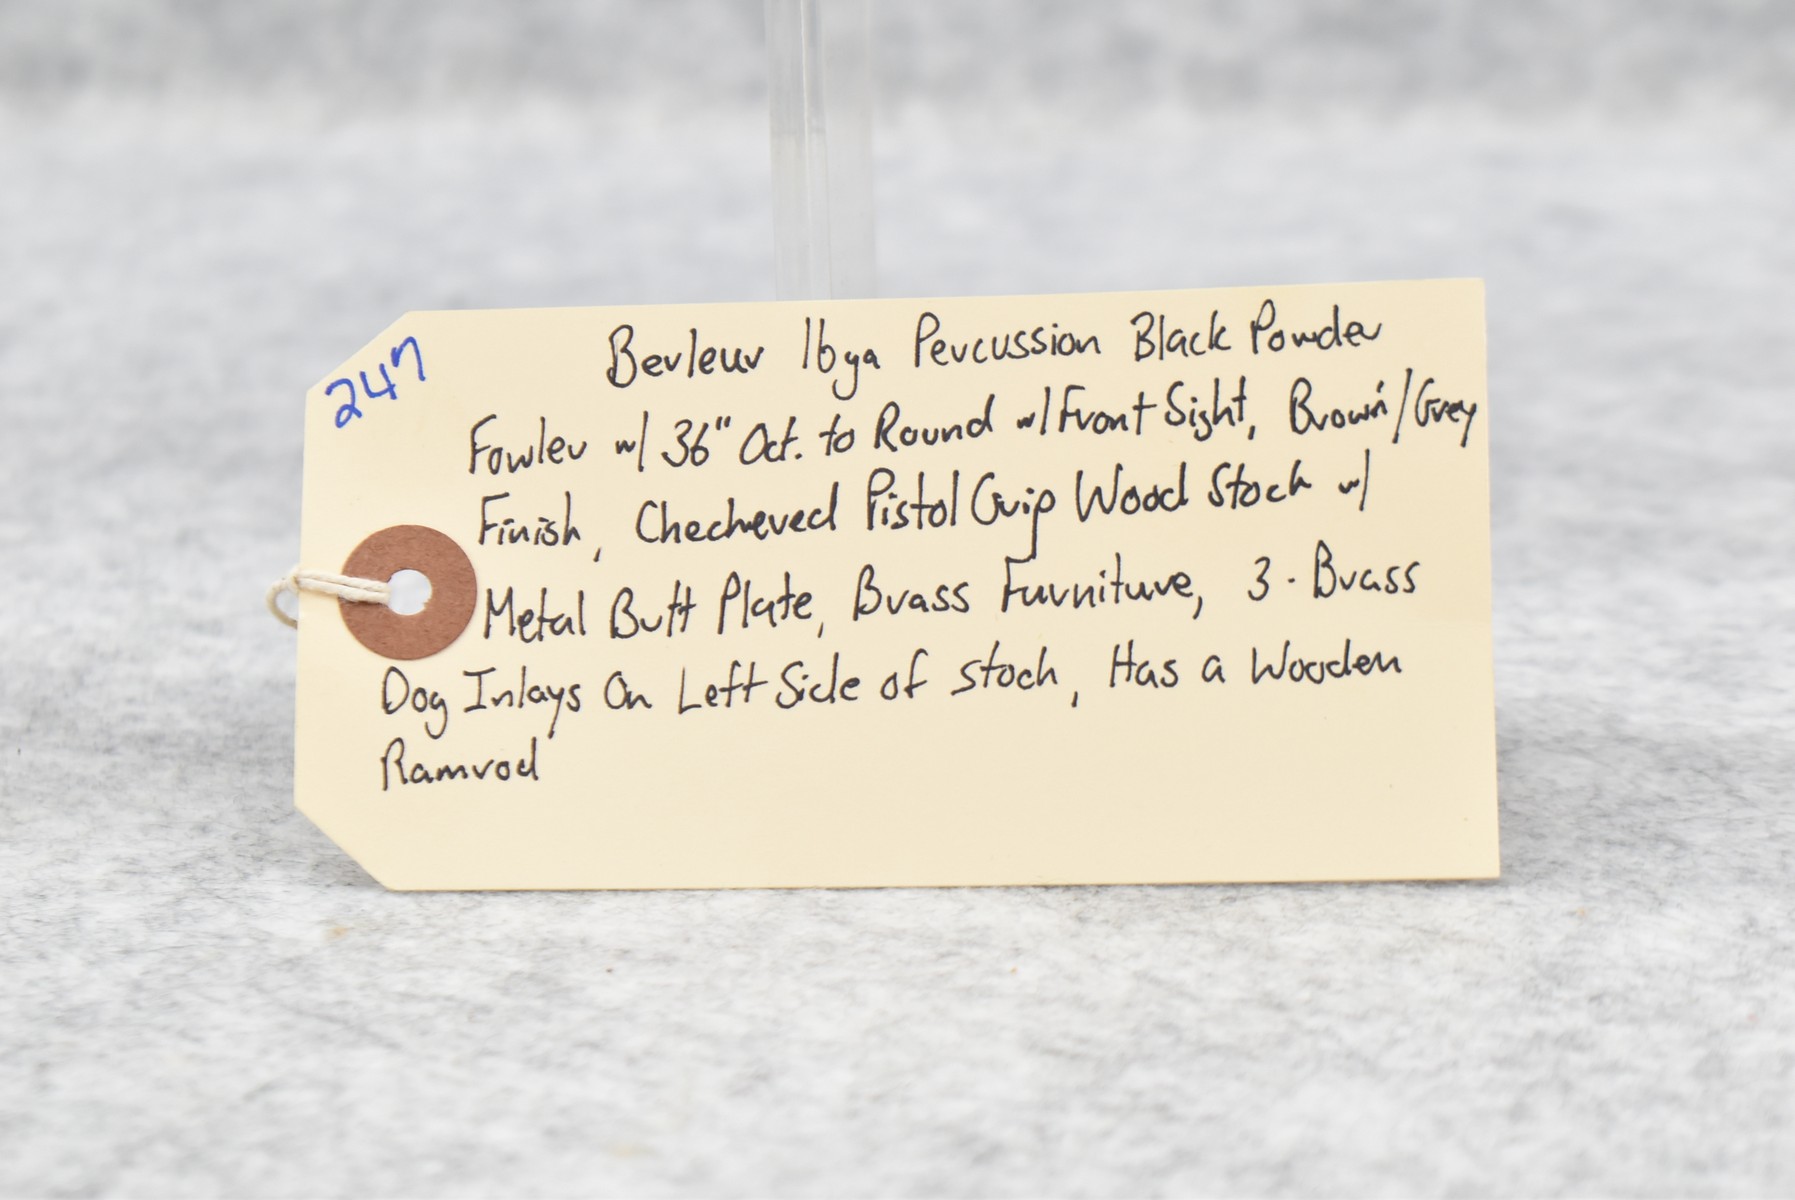 247
Berleur 16ga Percussion Black Powder
Fowler w/ 36" Oct. to Round w/ Front Sight, Brown/Grey
Finish, Checkered Pistol Grip Wood Stock w/
Metal Butt Plate, Brass Furniture, 3-Brass
Dog Inlays On Left Side of Stock, Has a Wooden
Ramrod